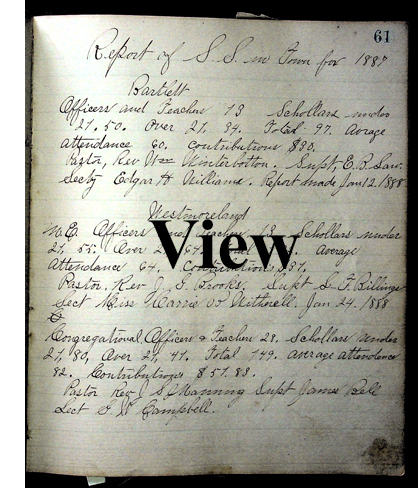 61
Report of S. S. in Town for 1887
Bartlett
Officers and Teachers 13 Schollars under
21. 50. Over 21, 34. Total 97. Avrage
attendance 60. contributions $30.
Pastor, Rev Wm Winterbotton. Supt, E. B. Law.
Secty Edgar H Williams. Report made Jan 12. 1888
Westmoreland
M.E. Officers and Teachers 13. Schollars under
21, 55. Over 2 Average
Attendance 64. Contributions $37.
Pastor. Rev J. G. Brooks. Supt L. F. Billings
Sect Miss Carrie Witherell. Jan 24. 1888
Congregational, Officers & Teachers 28. Schollars under
21, 80, Over 21, 41. Total 149. average attendance
82. Contributions $57.83.
Pastor Rev J S Manning Supt James Bell
Sect Campbell.
View